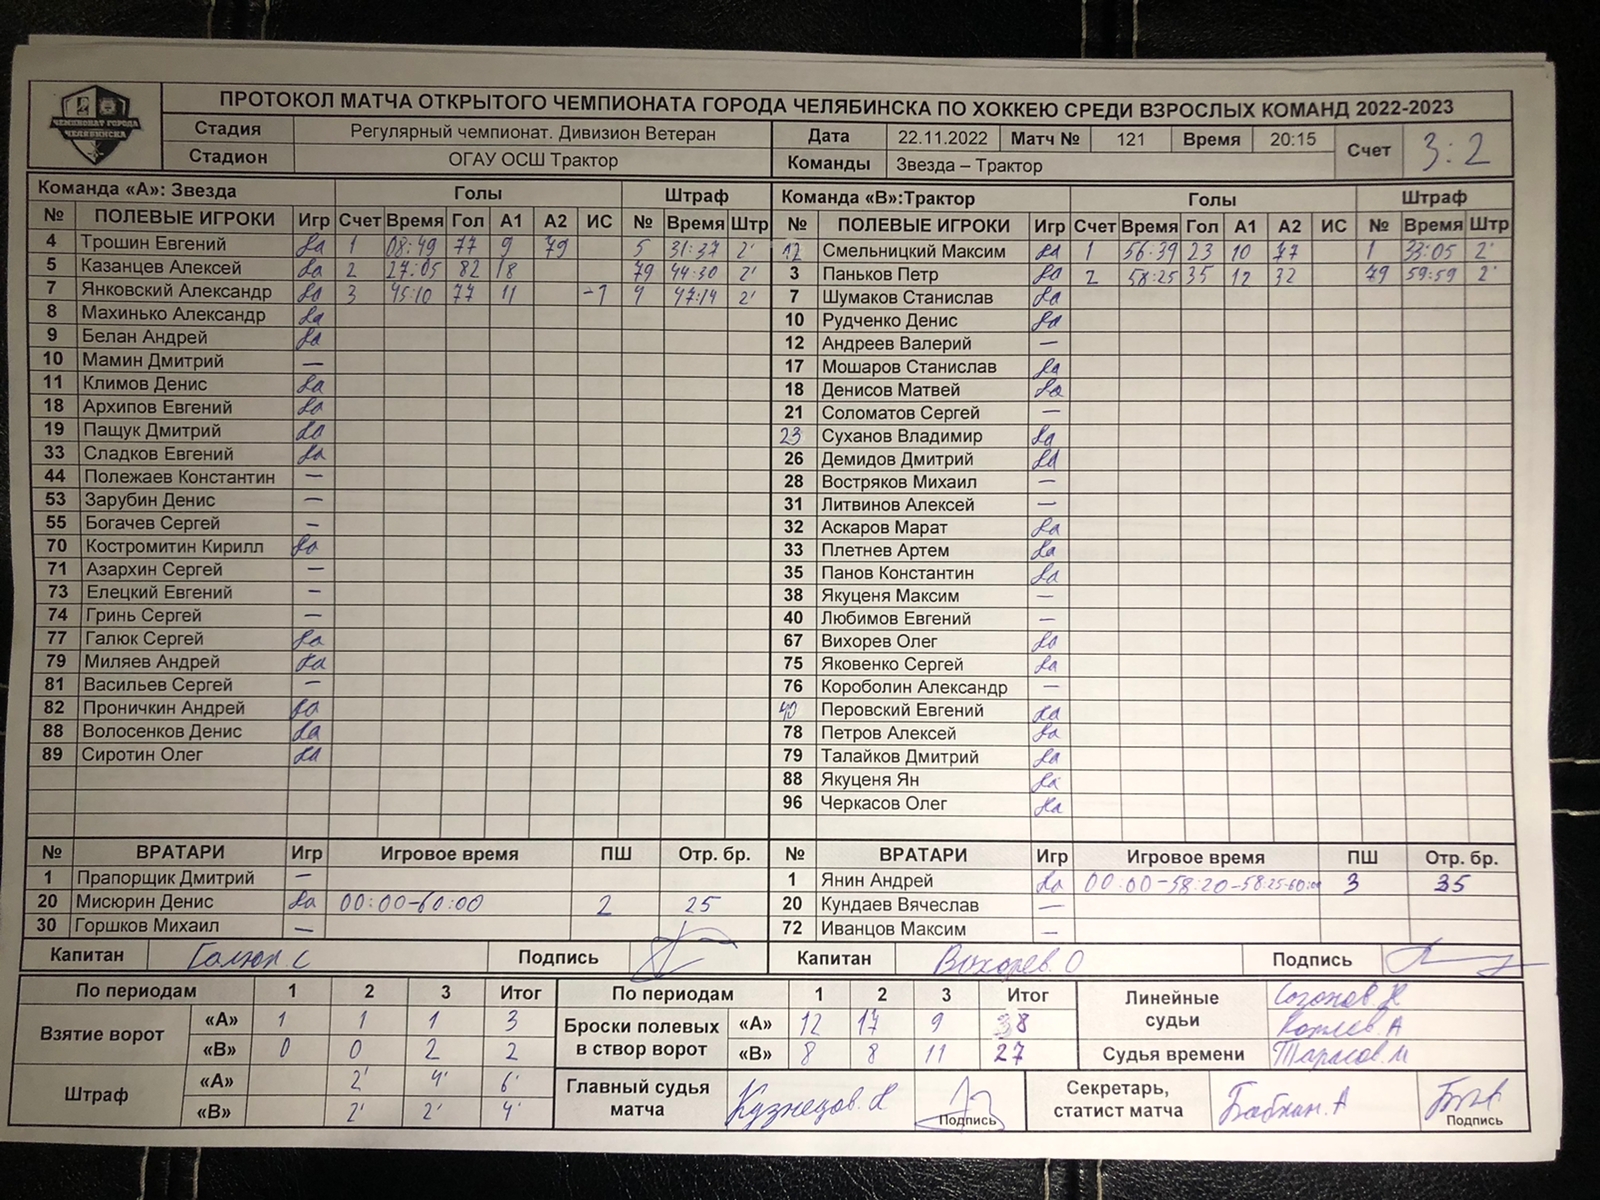 ПРОТОКОЛ МАТЧА ОТКРЫТОГО ЧЕМПИОНАТА ГОРОДА ЧЕЛЯБИНСКА ПО ХОККЕЮ СРЕДИ ВЗРОСЛЫХ КОМАНД 2022-2023
ЧЕМПИОНАТ ГОРОДА
ЧЕЛЯБИНСКА
Стадия Регулярный чемпионат. Дивизион Ветеран Дата 22.11.2022 Матч № 121 Время 20:15 Счет 3:2
Стадион ОГАУ ОСШ Трактор Команды Звезда – Трактор
Команда «А»: Звезда Голы Штраф
№ ПОЛЕВЫЕ ИГРОКИ Игр Счет Время Гол А1 А2 ИС № Время Штр
4 Трошин Евгений Да 1 08:49 77 9 79 5 31:37 2'
5 Казанцев Алексей Да 2 27:05 82 18 79 44:30 2'
7 Янковский Александр Да 3 45:10 77 11 -1 4 47:14 2'
8 Махинько Александр Да
9 Белан Андрей Да
10 Мамин Дмитрий —
11 Климов Денис Да
18 Архипов Евгений Да
19 Пащук Дмитрий Да
33 Сладков Евгений Да
44 Полежаев Константин —
53 Зарубин Денис —
55 Богачев Сергей —
70 Костромитин Кирилл Да
71 Азархин Сергей —
73 Елецкий Евгений —
74 Гринь Сергей —
77 Галюк Сергей Да
79 Миляев Андрей Да
81 Васильев Сергей —
82 Проничкин Андрей Да
88 Волосенков Денис Да
89 Сиротин Олег Да
№ ВРАТАРИ Игр Игровое время ПШ Отр. бр.
1 Прапорщик Дмитрий —
20 Мисюрин Денис Да 00:00-60:00 2 25
30 Горшков Михаил —
Капитан Галюк С Подпись
Команда «В»:Трактор Голы Штраф
№ ПОЛЕВЫЕ ИГРОКИ Игр Счет Время Гол А1 А2 ИС № Время Штр
Смельницкий Максим Да 1 56:39 23 10 77 1 33:05 2'
3 Паньков Петр Да 2 58:25 35 12 32 79 59:59 2'
7 Шумаков Станислав Да
10 Рудченко Денис Да
12 Андреев Валерий —
17 Мошаров Станислав Да
18 Денисов Матвей Да
21 Соломатов Сергей —
23 Суханов Владимир Да
26 Демидов Дмитрий Да
28 Востряков Михаил —
31 Литвинов Алексей —
32 Аскаров Марат Да
33 Плетнев Артем Да
35 Панов Константин Да
38 Якуценя Максим —
40 Любимов Евгений —
67 Вихорев Олег Да
75 Яковенко Сергей Да
76 Короболин Александр —
Перовский Евгений Да
78 Петров Алексей Да
79 Талайков Дмитрий Да
88 Якуценя Ян Да
96 Черкасов Олег Да
№ ВРАТАРИ Игр Игровое время ПШ Отр. бр.
1 Янин Андрей Да 00:00-58:20-58:25-60:00 3 35
20 Кундаев Вячеслав —
72 Иванцов Максим —
Капитан Вихорев. О Подпись
По периодам 1 2 3 Итог
Взятие ворот «А» 1 1 1 3
«В» 0 0 2 2
Штраф «А» 2' 4' 6'
«В» 2' 2' 4'
По периодам 1 2 3 Итог
Броски полевых в створ ворот «А» 12 17 9 38
«В» 8 8 11 27
Главный судья матча Кузнецов. Подпись
Линейные судьи
Судья времени Тарасов. М
Секретарь, статист матча Бабкин. А Подпись